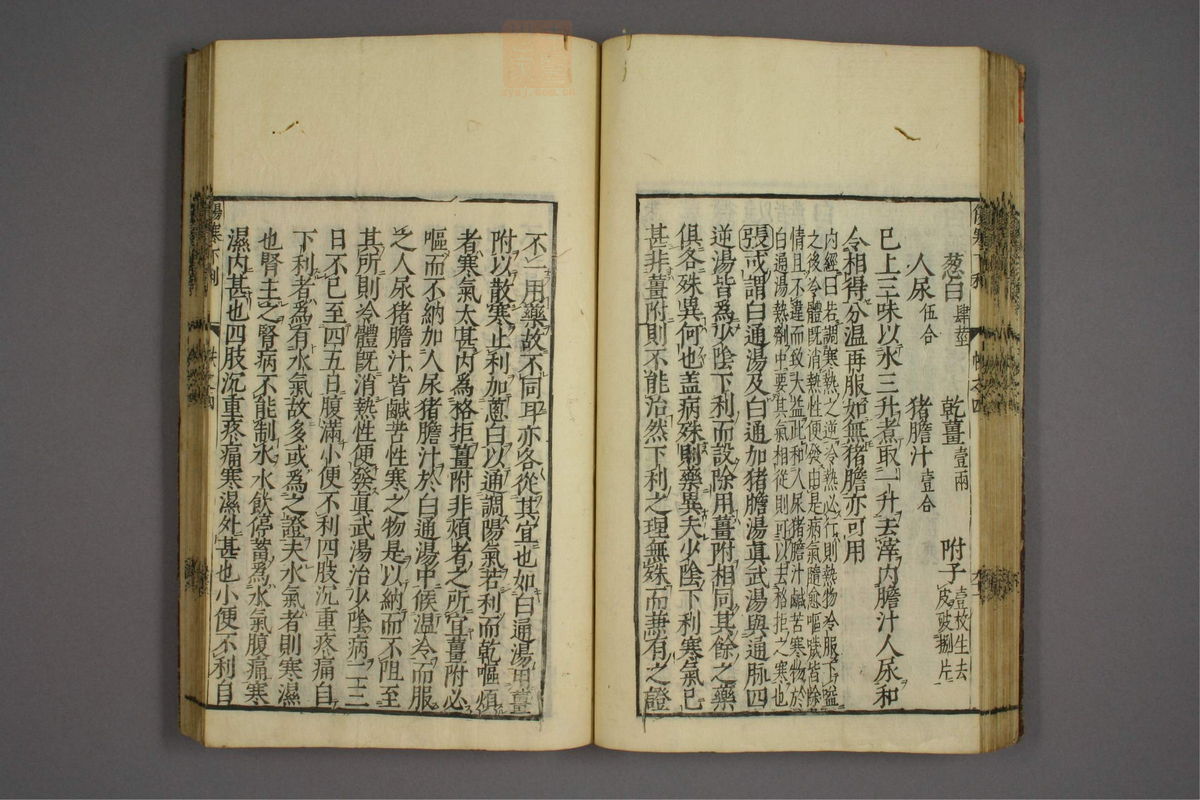 葱白肆莖　乾薑壹兩　附子壹枚生去皮破捌片
人尿伍合　猪膽汁壹合
已上三味以水三升煮取一升去滓内膽汁人尿和
令相得分温再服如無猪膽亦可用
内經曰若調寒熱之逆冷熱必行則熱物冷服下嗌
之後冷體既消熱性便發由是病氣隨愈嘔噦皆除
情且不違而致大益此和人尿猪膽汁鹹苦寒物於
白通湯熱劑中要其氣相從則可以去格拒之寒也
張或謂白通湯及白通加猪膽湯眞武湯與通脉四
逆湯皆爲少陰下利而設除用薑附相同其餘之藥
俱各殊異何也盖病殊則藥異夫少陰下利寒氣已
甚非薑附則不能治然下利之理無殊而兼有之證
不一用藥故不同耳亦各從其宜也如白通湯用薑
附以散寒止利加葱白以通調陽氣若利而乾嘔煩
者寒氣太甚内爲格拒薑附非煩者之所宜薑附必
嘔而不納加人尿猪膽汁於白通湯中候温冷而服
之人尿猪膽汁皆鹹苦性寒之物是以納而不阻至
其所則冷體既消熱性便發眞武湯治少陰病二三
日不已至四五日腹滿小便不利四肢沉重疼痛自
下利者爲有水氣故多或爲之證夫水氣者則寒濕
也腎主之腎病不能制水水飲停蓄爲水氣腹痛寒
濕内甚也四肢沉重疼痛寒濕外甚也小便不利自
傷寒下利
帙之四